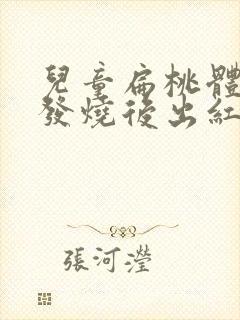 兒童扁桃體
發燒後出紅
張河瀅